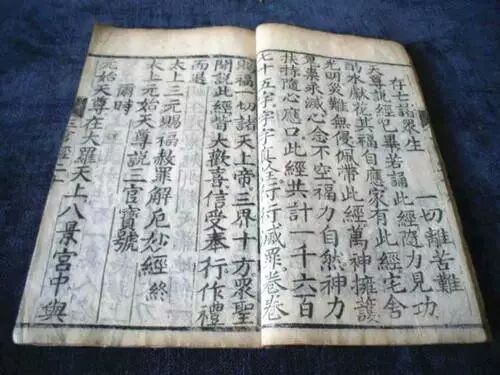 存亡諸眾生　一切離苦難
天尊說經已畢若誦此經隨力見功
酌水獻花其福自應家有此經宅舍
光明災難無侵佩帶此經萬神擁護
罪業永滅心念不空福力自然神力
扶持隨心應口此經共計一千六百
七十五字字字真全行行滅罪卷卷
賜福一切諸天上帝三界十方眾聖
聞說此經皆大歡喜信受奉行作禮
而退
太上三元賜福赦罪解厄妙經終
太上元始天尊說三官寶號
爾時
元始天尊在大羅天上八景宮中與